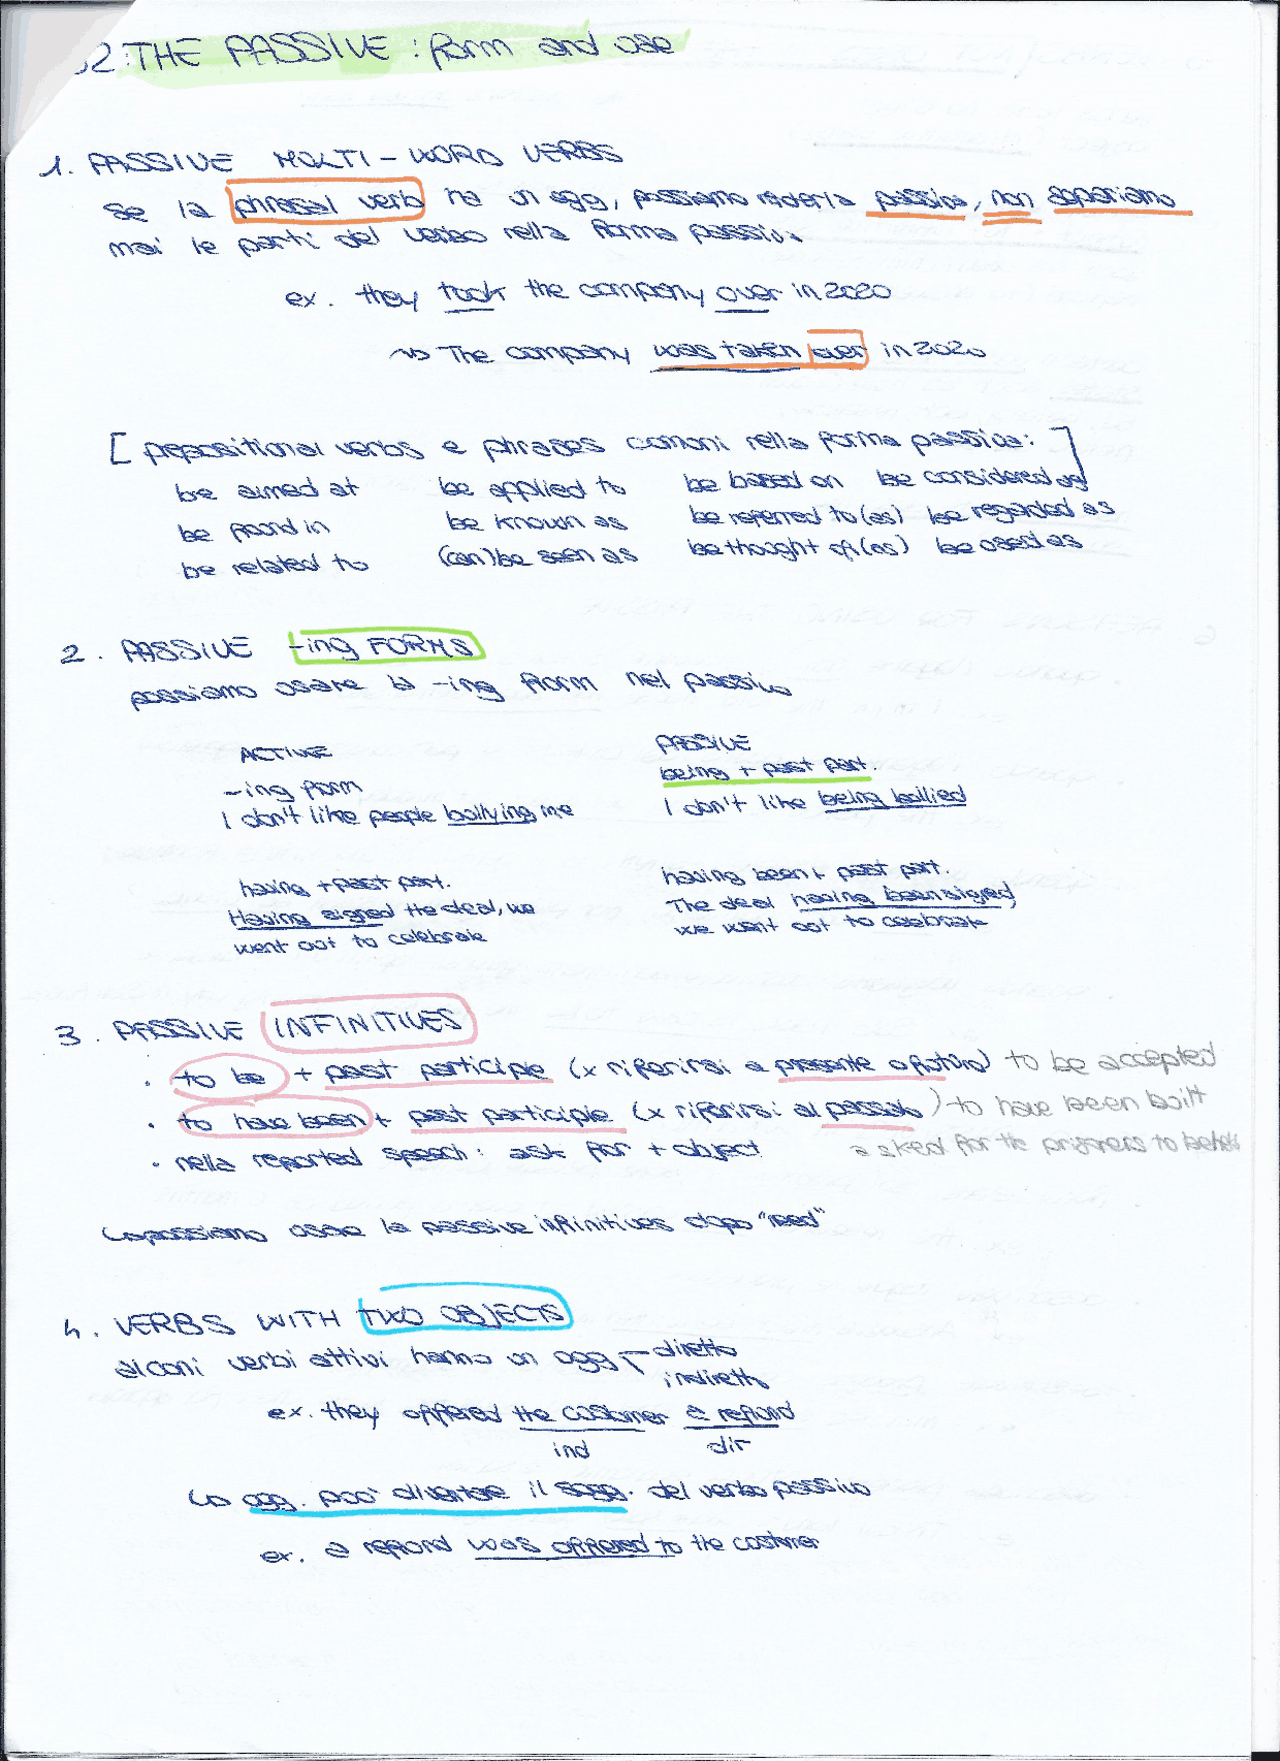 32. THE PASSIVE: form and use
1. PASSIVE MULTI-WORD VERBS
se la phrasal verb ha un ogg, possiamo renderla passiva, non separiamo
mai le parti del verbo nella forma passiva
ex. they took the company over in 2020
↪ The company was taken over in 2020
[ prepositional verbs e phrases comuni nella forma passiva: ]
be aimed at be applied to be based on be considered as
be found in be known as be referred to (as) be regarded as
be related to (can) be seen as be thought of (as) be used as
2. PASSIVE -ing FORMS
possiamo usare la -ing form nel passivo
ACTIVE PASSIVE
-ing form being + past part.
I don't like people bullying me I don't like being bullied
having + past part. having been + past part.
Having signed the deal, we The deal having been signed
went out to celebrate we went out to celebrate
3. PASSIVE INFINITIVES
• to be + past participle (x riferirsi a presente o futuro) to be accepted
• to have been + past participle (x riferirsi al passato) to have been built
• nella reported speech: ask for + object asked for the prisoners to be
↪ possiamo usare la passive infinitives dopo "need"
4. VERBS WITH TWO OBJECTS
alcuni verbi attivi hanno un ogg diretto
indiretto
ex. they offered the customer a refund
ind dir
↪ ogg. può diventare il sogg. del verbo passivo
ex. a refund was offered to the customer